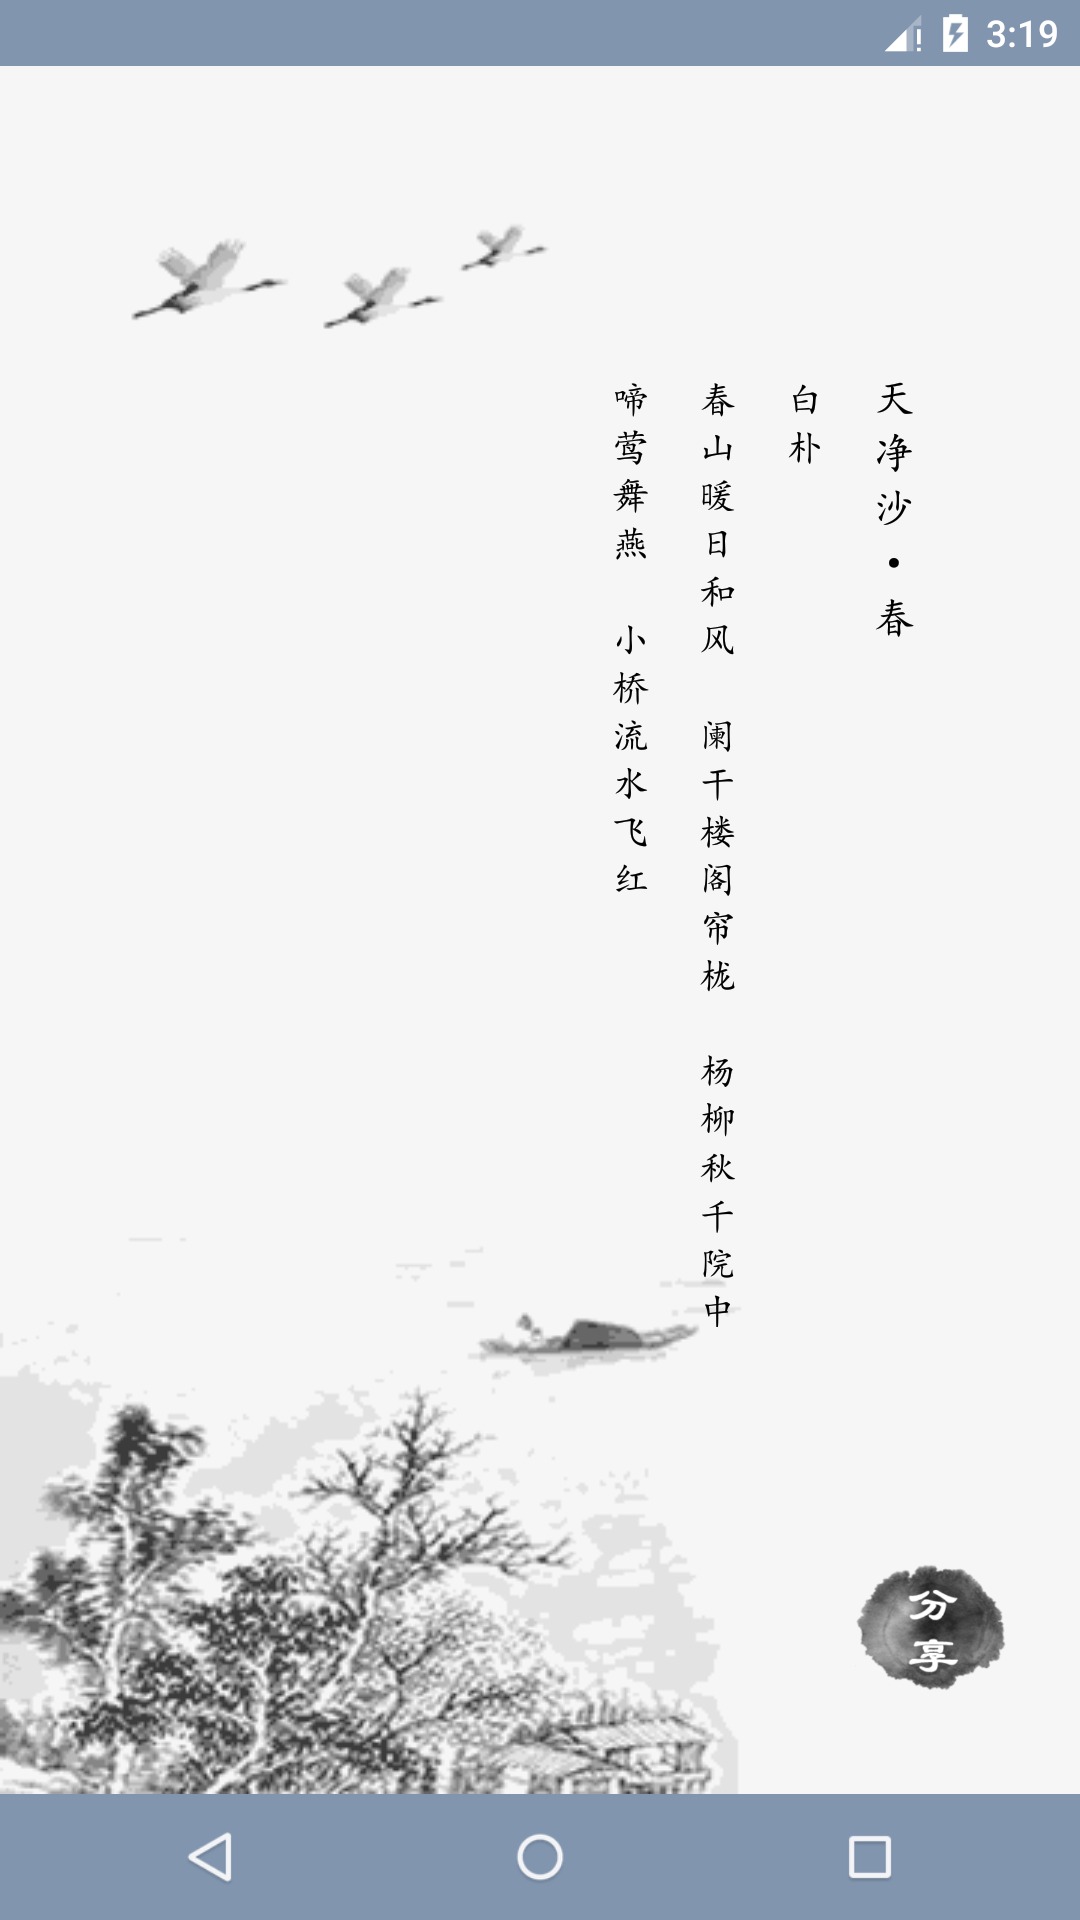 3:19
天净沙·春
白朴
春山暖日和风 阑干楼阁帘栊 杨柳秋千院中
啼莺舞燕 小桥流水飞红
分享